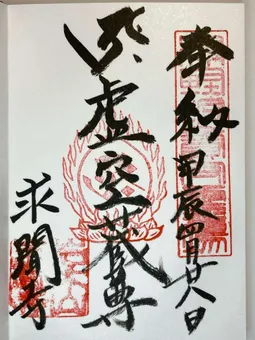 奉拝 甲辰四月廿八日
虚空蔵尊
求聞寺